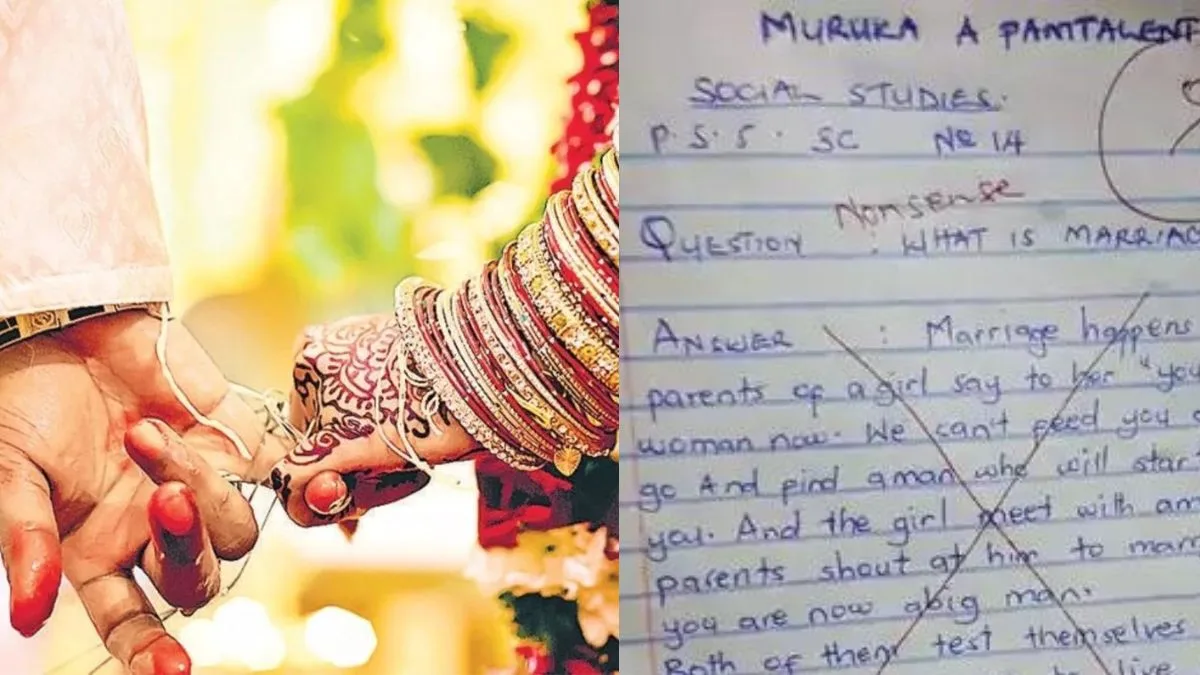 MURUKA A PAMTALENT
SOCIAL STUDIES.
P.S.5. SC No 14
Nonsense
QUESTION : WHAT IS MARRIAG
ANSWER : Marriage happens
parents of a girl say to her "you
woman now. We can't feed you
go And find a man who will star
you. And the girl meet with a
parents shout at him to mar
you are now a big man.
Both of them test themselves
live